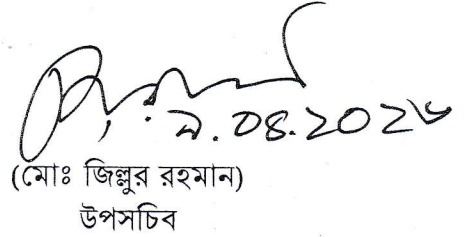 ০৪.২০২৬
(মোঃ জিল্লুর রহমান)
উপসচিব